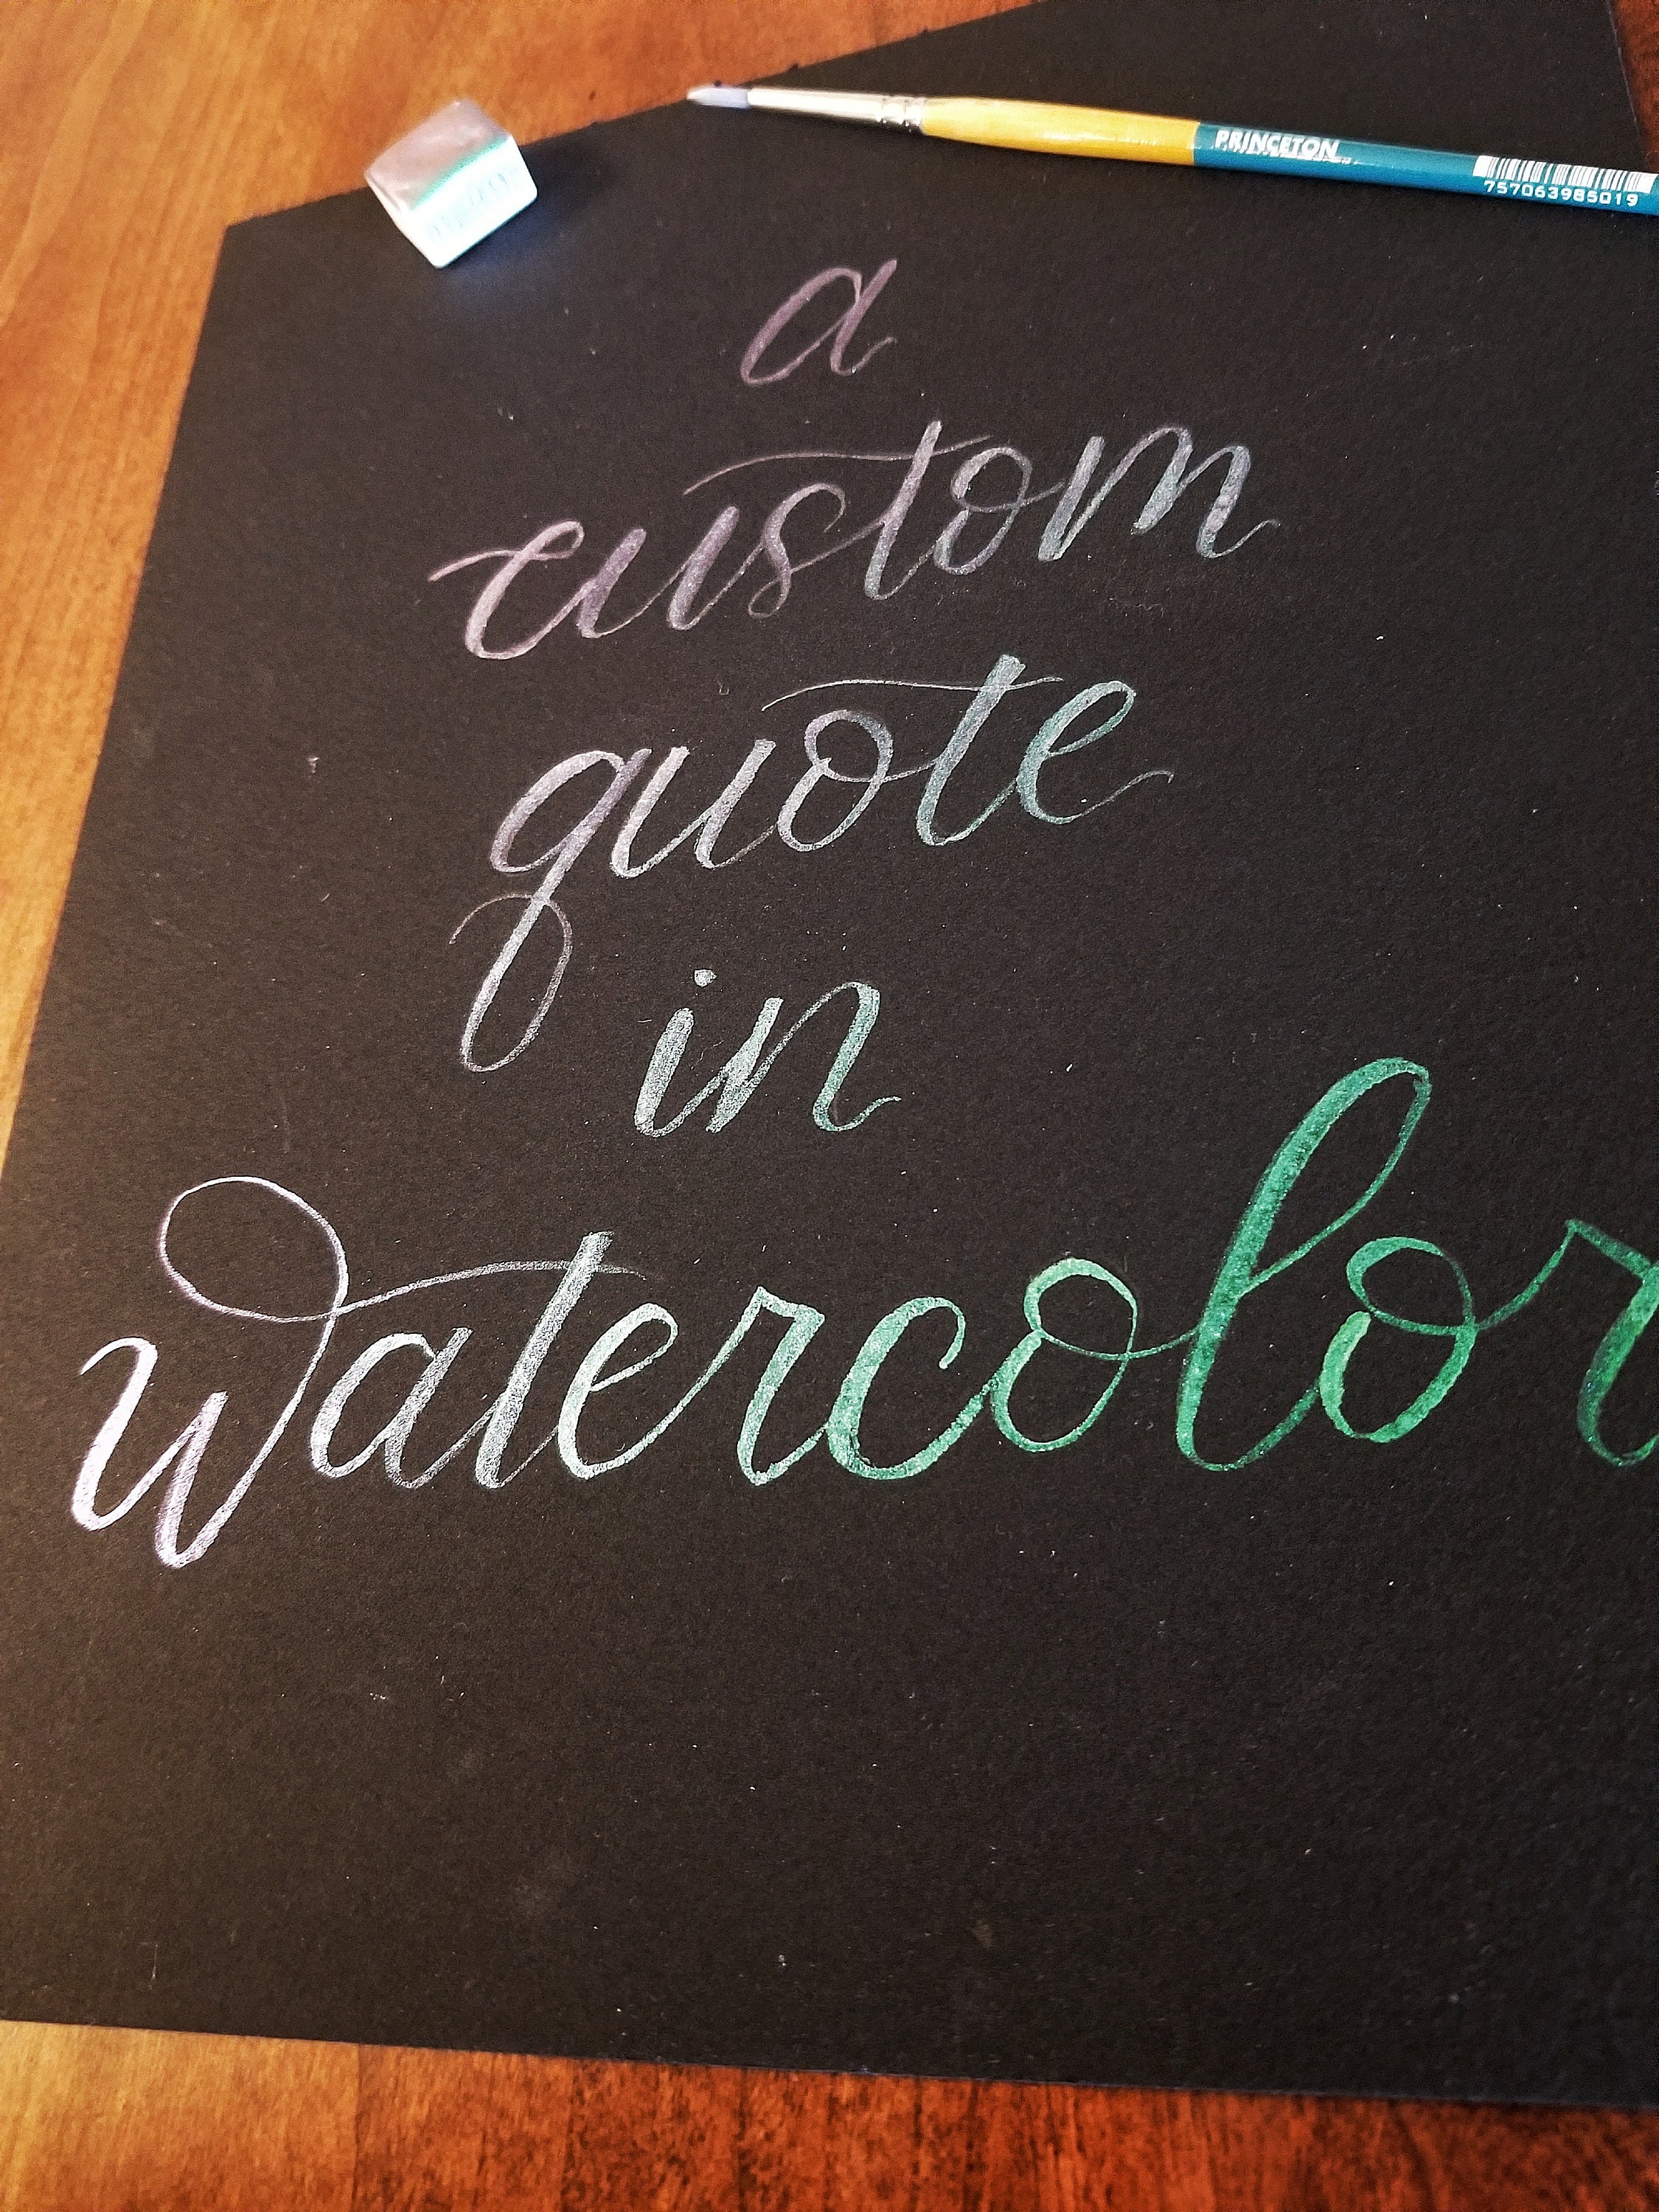 PRINCETON
757063985019
a
custom
quote
in
watercolor